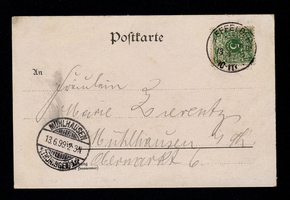 Postkarte
An
Fräulein
Marie Zierentz
Mühlhausen i/Th.
Obermarkt 6.
MÜHLHAUSEN
13.6.99. 8-9N
(THÜRINGEN)